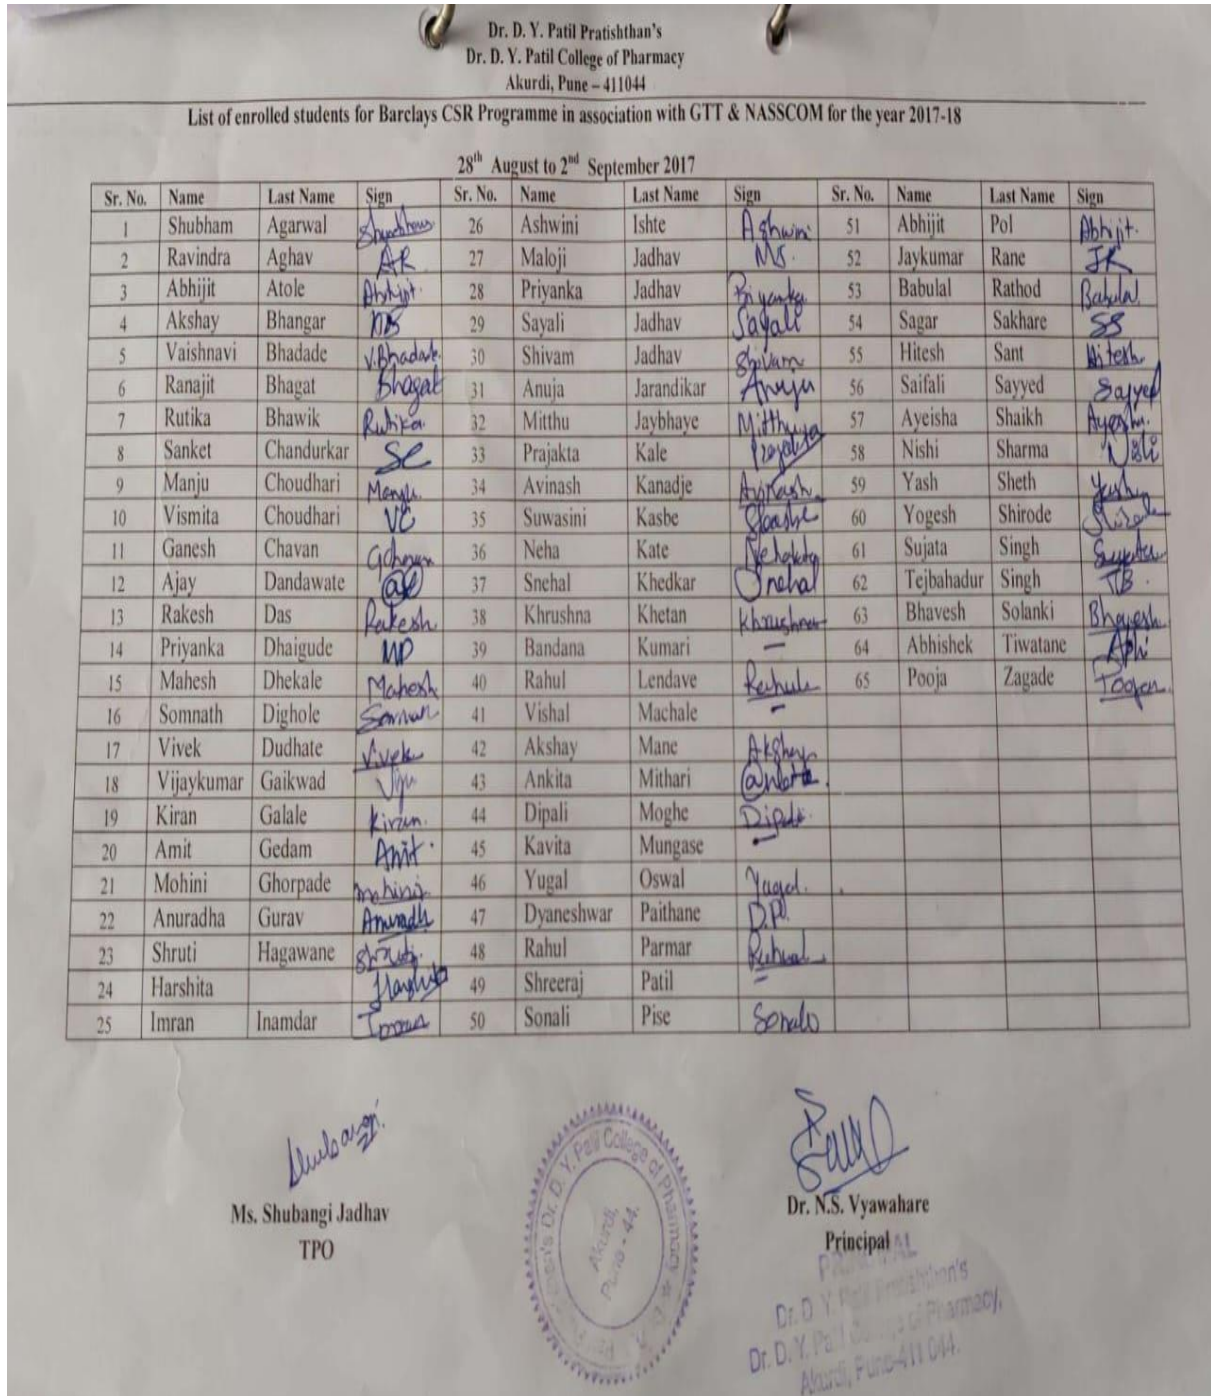 Dr. D. Y. Patil Pratishthan's
Dr. D. Y. Patil College of Pharmacy
Akurdi, Pune – 411044
List of enrolled students for Barclays CSR Programme in association with GTT & NASSCOM for the year 2017-18
28th August to 2nd September 2017
Sr. No. Name Last Name Sign Sr. No. Name Last Name Sign Sr. No. Name Last Name Sign
1 Shubham Agarwal 26 Ashwini Ishte Ashwini 51 Abhijit Pol Abhijit.
2 Ravindra Aghav AR 27 Maloji Jadhav MS. 52 Jaykumar Rane JR
3 Abhijit Atole Abhijit. 28 Priyanka Jadhav Priyanka 53 Babulal Rathod Babulal
4 Akshay Bhangar 29 Sayali Jadhav Sayali 54 Sagar Sakhare SS
5 Vaishnavi Bhadade V.Bhadade 30 Shivam Jadhav Shivam 55 Hitesh Sant Hitesh
6 Ranajit Bhagat Bhagat 31 Anuja Jarandikar Anuja 56 Saifali Sayyed Sayyed
7 Rutika Bhawik Rutika 32 Mitthu Jaybhaye 57 Ayeisha Shaikh
8 Sanket Chandurkar SC 33 Prajakta Kale 58 Nishi Sharma
9 Manju Choudhari Manju 34 Avinash Kanadje Avinash 59 Yash Sheth Yash
10 Vismita Choudhari VC 35 Suwasini Kasbe 60 Yogesh Shirode
11 Ganesh Chavan 36 Neha Kate 61 Sujata Singh Sujata
12 Ajay Dandawate 37 Snehal Khedkar Snehal 62 Tejbahadur Singh TB.
13 Rakesh Das Rakesh 38 Khrushna Khetan Khrushna 63 Bhavesh Solanki Bhavesh
14 Priyanka Dhaigude 39 Bandana Kumari – 64 Abhishek Tiwatane Abhi
15 Mahesh Dhekale Mahesh 40 Rahul Lendave 65 Pooja Zagade
16 Somnath Dighole 41 Vishal Machale –
17 Vivek Dudhate Vivek 42 Akshay Mane Akshay
18 Vijaykumar Gaikwad Viju 43 Ankita Mithari
19 Kiran Galale Kiran. 44 Dipali Moghe Dipali
20 Amit Gedam Amit 45 Kavita Mungase –
21 Mohini Ghorpade Mohini 46 Yugal Oswal Yugal.
22 Anuradha Gurav Anuradh 47 Dyaneshwar Paithane D.P.
23 Shruti Hagawane Shruti 48 Rahul Parmar
24 Harshita Harshita 49 Shreeraj Patil –
25 Imran Inamdar Imran 50 Sonali Pise Sonali
Ms. Shubangi Jadhav
TPO
Dr. N.S. Vyawahare
Principal
Dr. D. Y. Patil College of Pharmacy
Akurdi,
Pune - 44.
PRINCIPAL
Dr. D. Y. Patil Pratishthan's
Dr. D. Y. Patil College of Pharmacy,
Akurdi, Pune-411 044.